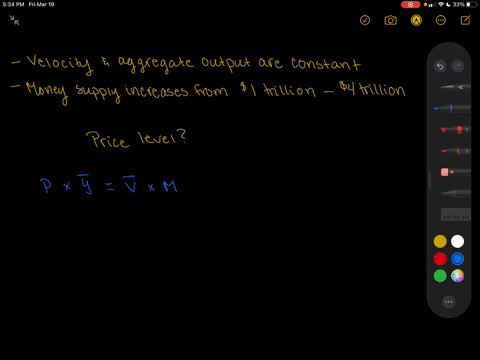 5:34 PM Fri Mar 19
133%
- Velocity & aggregate output are constant
- Money supply increases from $1 trillion - $4 trillion
Price level?
P × y̅ = V̅ × M